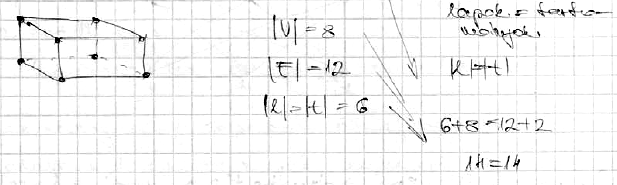 |V| = 8
|E| = 12
|l| = |t| = 6
lapok = tarto-
mányok
|l|=|t|
6+8=12+2
14=14